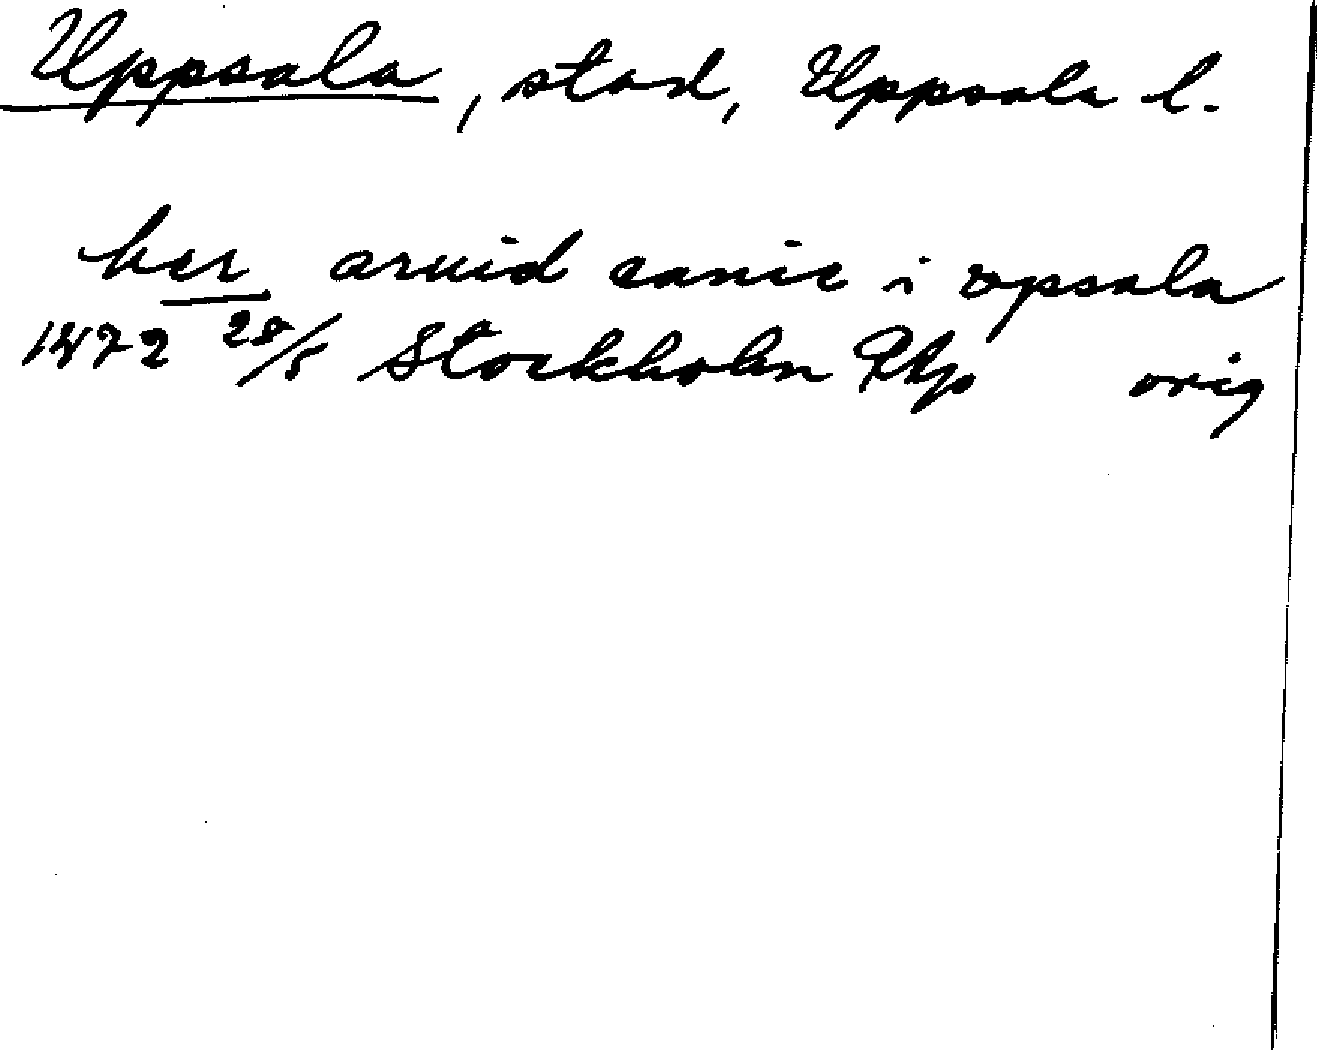 Uppsala, stad, Uppsala l.
her aruid canic i vpsala
1472 28/5 Stockholm RAp orig